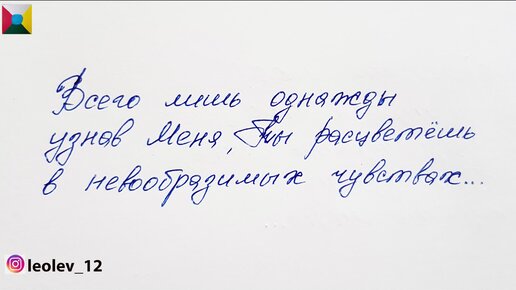 Всего лишь однажды
узнав Меня, Ты расцветёшь
в невообразимых чувствах...
leolev_12